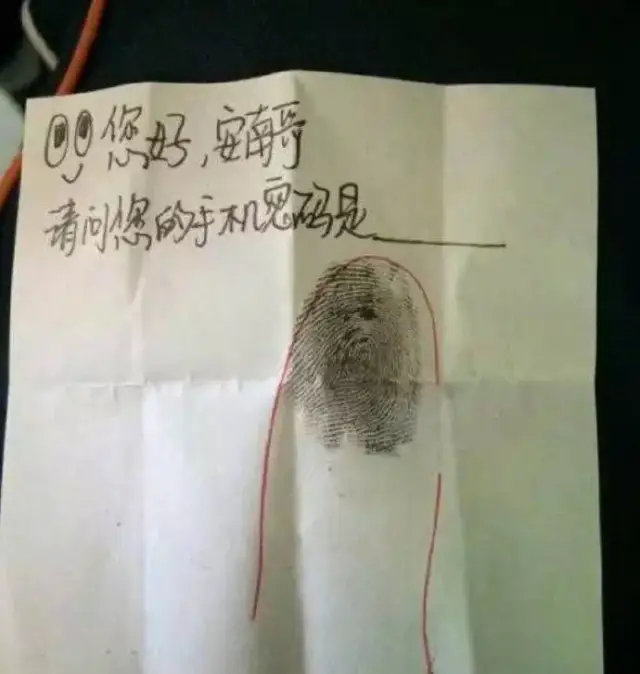 您好,安南哥
请问您的手机密码是______